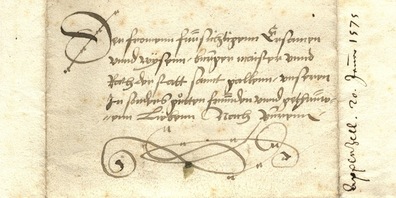 Den fromen fürsichtigenn Ersamen
unnd wÿsenn burgermaister unnd
Rath der statt sant gallenn unseren
In sonders gůtten fründen unnd getrüw=
enn Lieben Nach puren
Appenzell. 20. Junij 1575